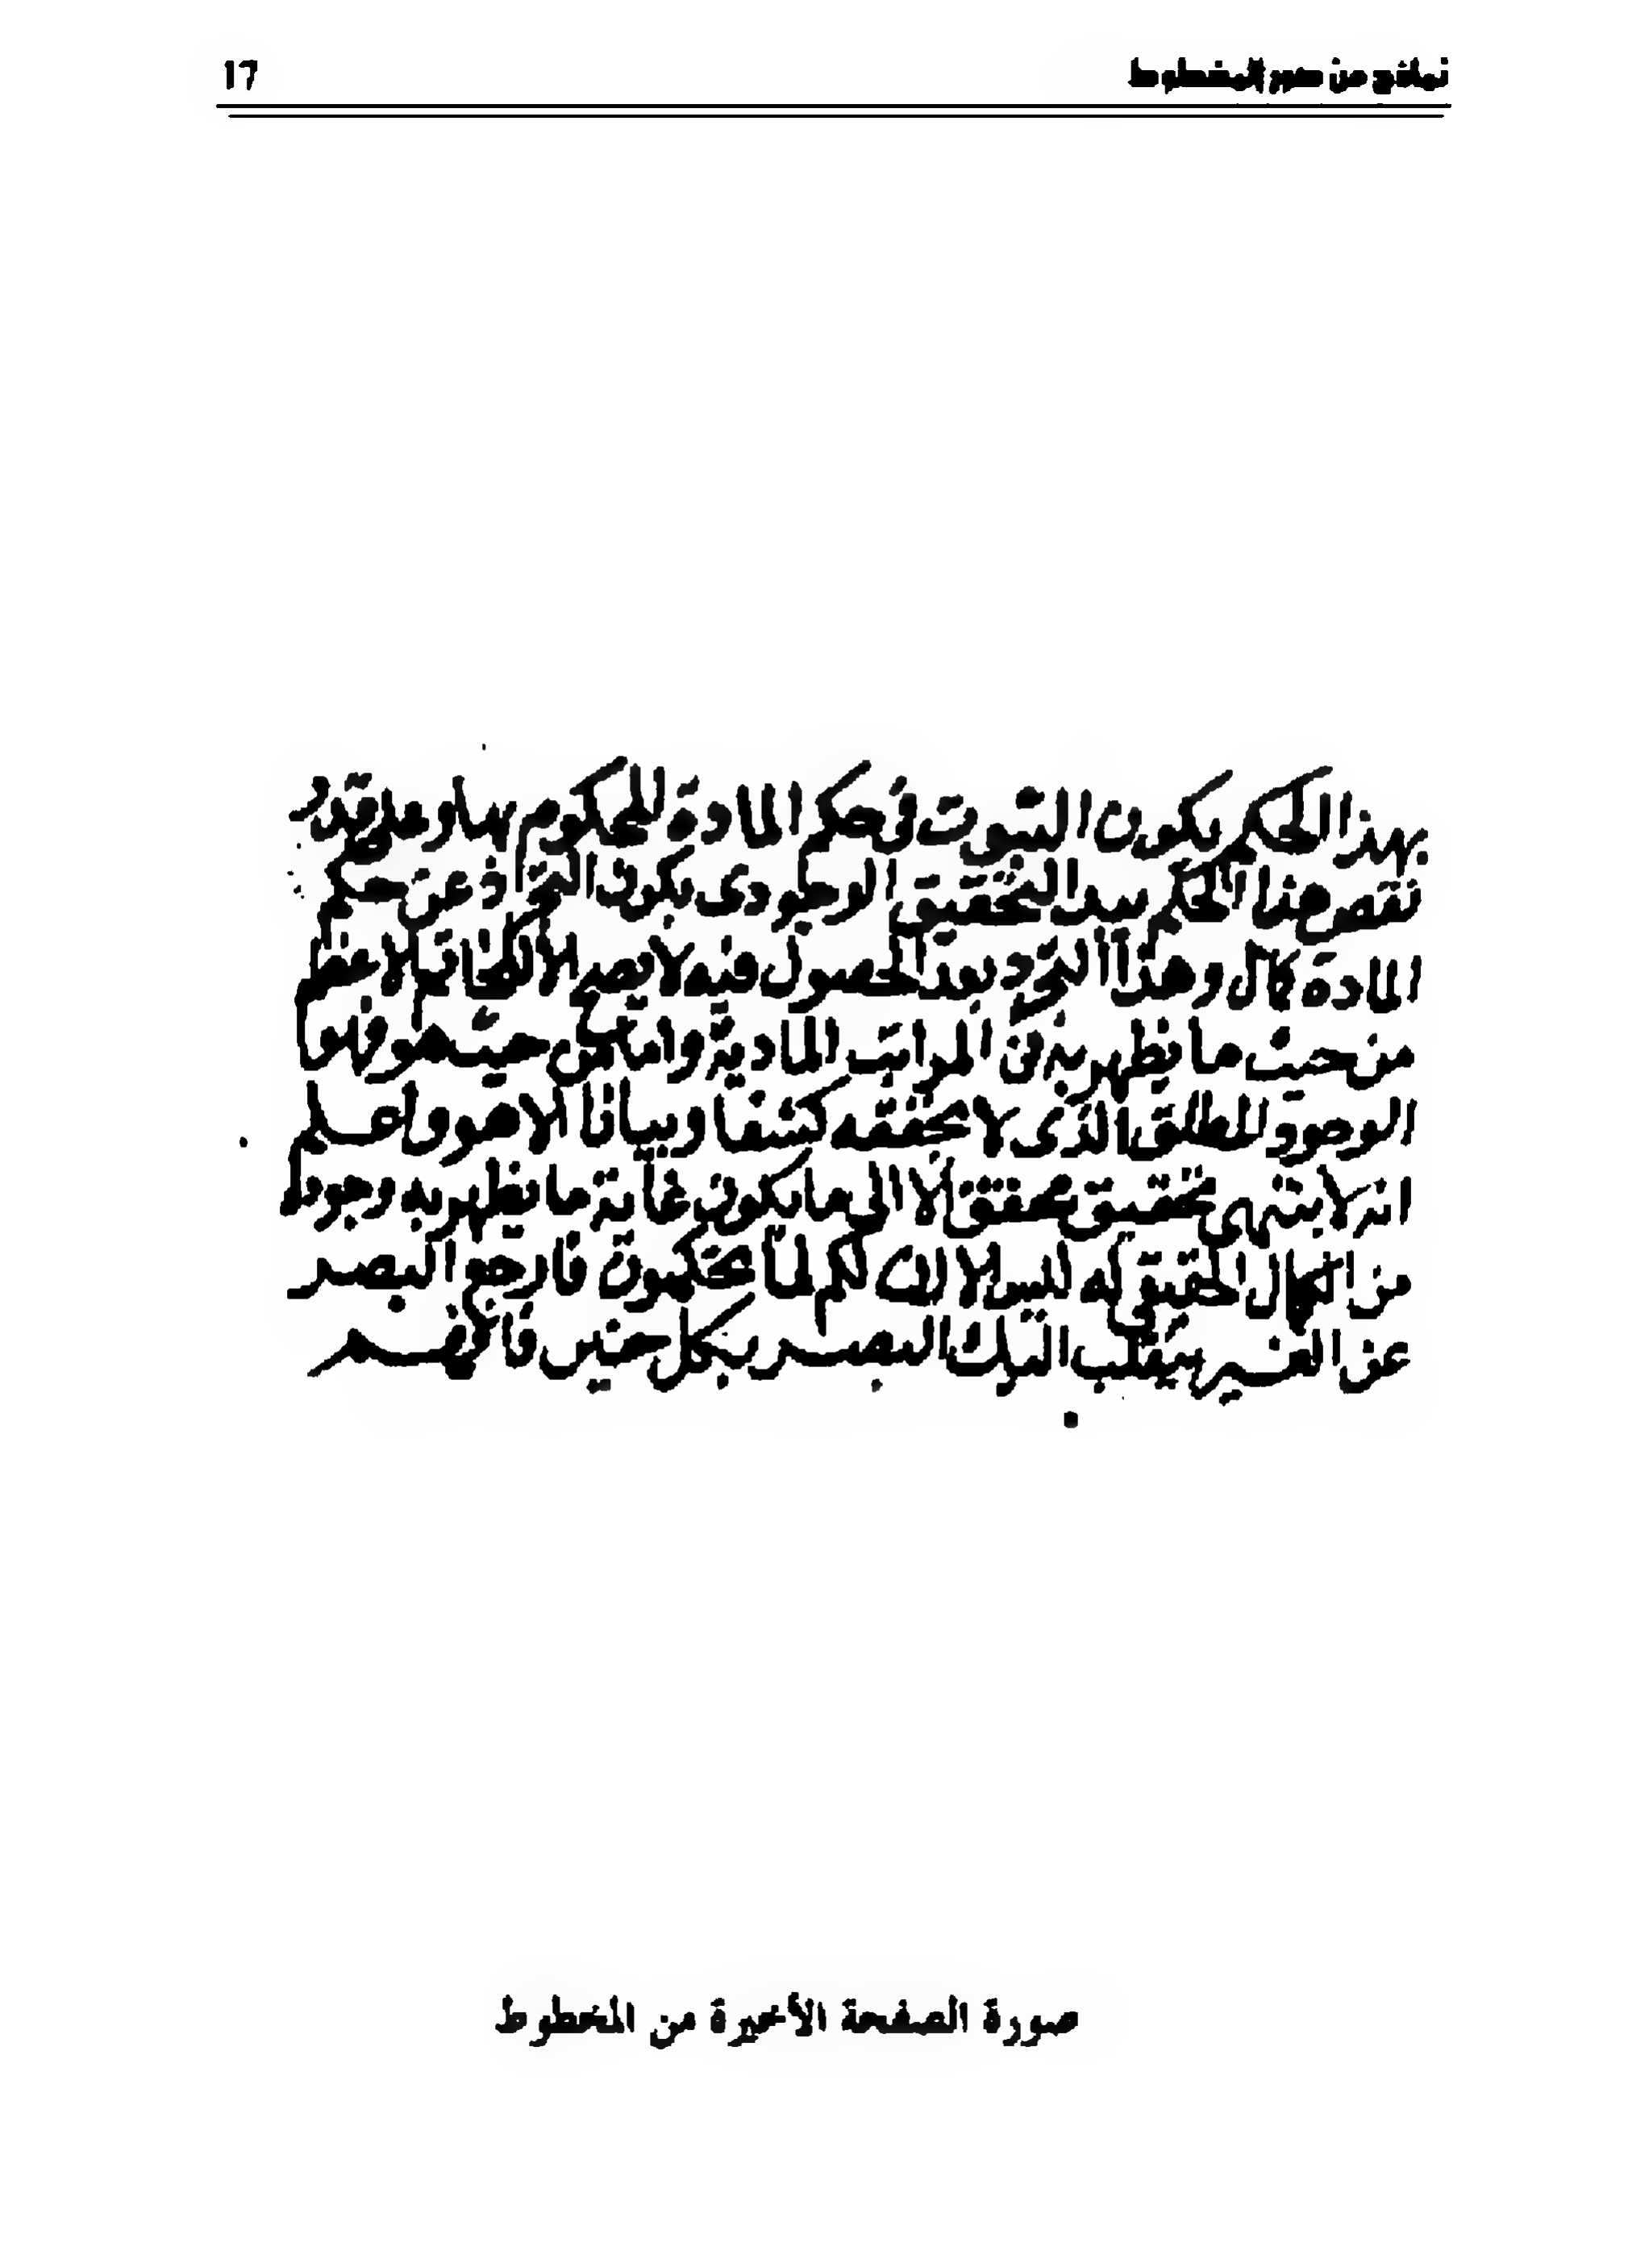 نماذج من صور المخطوط
17
بهذا الحكم يكون الثبوت في حكم المادة المحكوم بها وعند
هذا الحكم التحقيق الوجودي يكون عن حكم
المادة قال وهذا التجرد بعد الحصول فيه لا
من حيث ما يظهر به في المراتب المادية واما من حيث هو فهو
الوجود المطلق الذى لا يحققه كشفا وبيانا الا هو واعلم
انه لا ينتهى تحقيق محقق الا الى ما يكون غاية ما يظهر به وجوده
من الحقيقي له ليس الا ان لكم لما تحكمون فارجع البصر
عن الغير ينقلب اليك البصر بكل حنين فافهم
صورة الصفحة الأخيرة من المخطوط